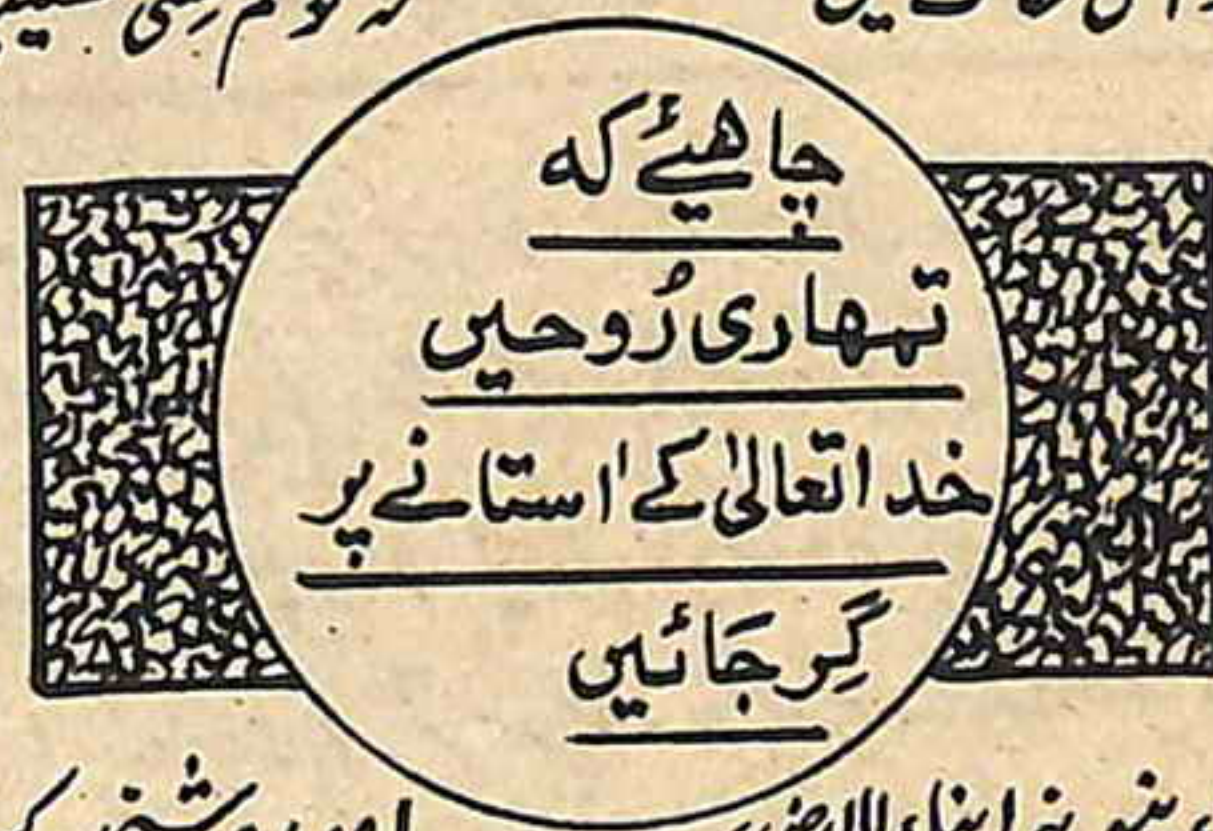 چاهیئے که
تمہاری رُوحیں
خداتعالیٰ کے استانے پر
گِر جَائیں